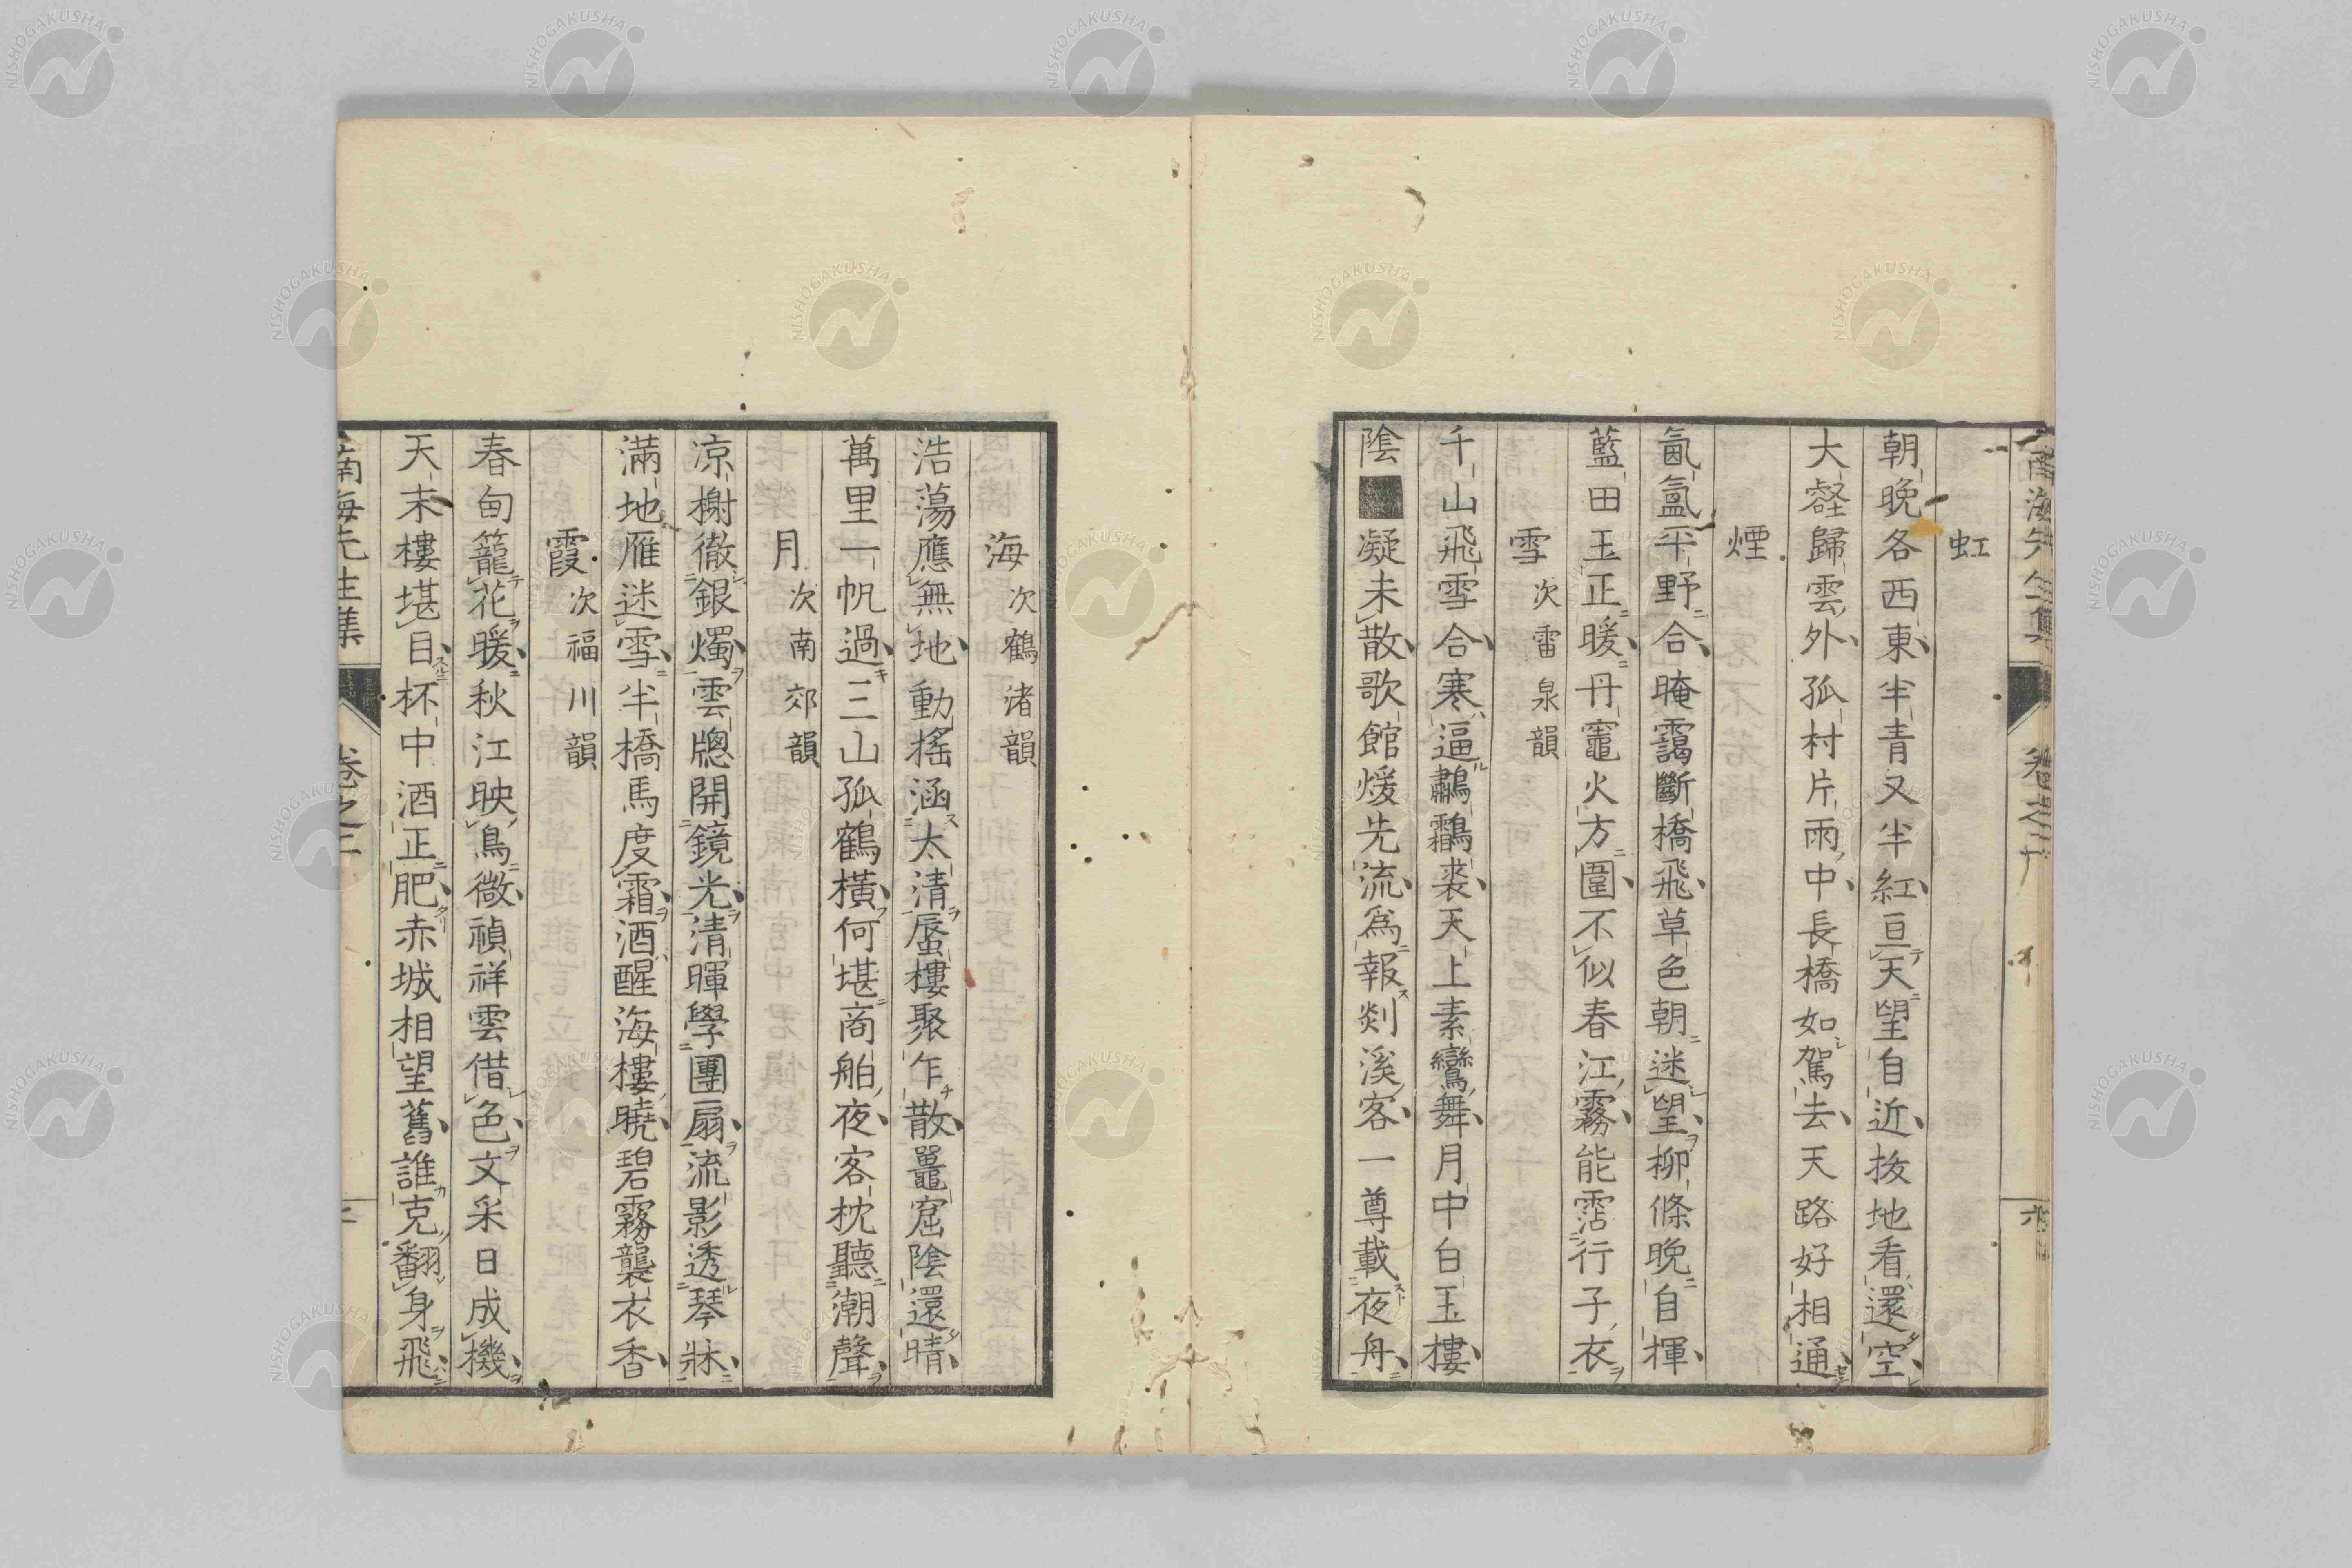 虹
朝晩各西東半青又半紅亘天望自近抜地看還空
大壑歸雲外孤村片雨中長橋如駕去天路好相通
煙
氤氳平野合晻靄斷橋飛草色朝迷望柳條晩自揮
藍田玉正暖丹竈火方圍不似春江霧能霑行子衣
雪 次雷泉韻
千山飛雪合寒逼鷫鸘裘天上素鸞舞月中白玉樓
陰■凝未散歌館煖先流爲報剡溪客一尊載夜舟
海 次鶴渚韻
浩蕩應無地動搖涵太清蜃樓聚乍散鼉窟陰還晴
萬里一帆過三山孤鶴橫何堪商舶夜客枕聽潮聲
月 次南郊韻
凉榭徹銀燭雲牕開鏡光清暉學團扇流影透琴牀
滿地雁迷雪半橋馬度霜酒醒海樓曉碧霧襲衣香
霞 次福川韻
春甸籠花暖秋江映鳥微禎祥雲借色文采日成機
天末樓堪目杯中酒正肥赤城相望舊誰克翻身飛
南海先生集 卷之二
NISHOGAKUSHA